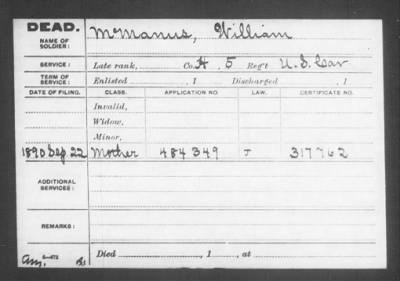 DEAD.
NAME OF SOLDIER: McManus, William
SERVICE: Late rank, Co. H, 5 Reg't U.S. Cav
TERM OF SERVICE: Enlisted , 1 Discharged , 1
DATE OF FILING. CLASS. APPLICATION NO. LAW. CERTIFICATE NO.
Invalid,
Widow,
Minor,
1890 Sep. 22 Mother 484349 J 317762
ADDITIONAL SERVICES:
REMARKS:
Died , 1 , at